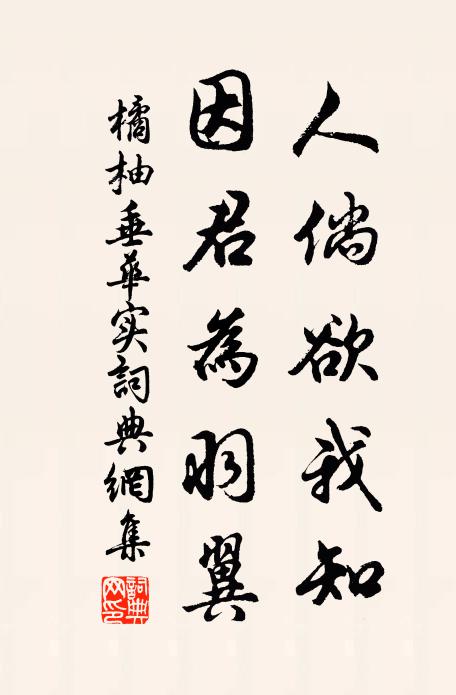 人倘欲我知
因君為羽翼
橘柚垂華实詞典網集
詞典網印